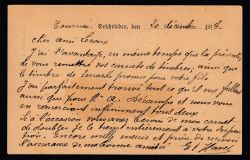 Tournai, Feldpoststation, den 20 décembre 1917
cher ami Leroux
J'ai l'avantage, en même temps que la présente,
de vous remettre vos carnets de timbres; ainsi que
le timbre de Canada promis pour votre fils.
J'ai parfaitement trouvé tout ce qu'il me fallait
ainsi que pour M. A. et nous vous
en remercions infiniment tous deux.
Si à l'occasion vous avez besoin de mon carnet
de doubles je le tiens entièrement à votre dispo-
sition. Encore mille mercis et prie de recevoir
l'assurance de ma bonne amitié